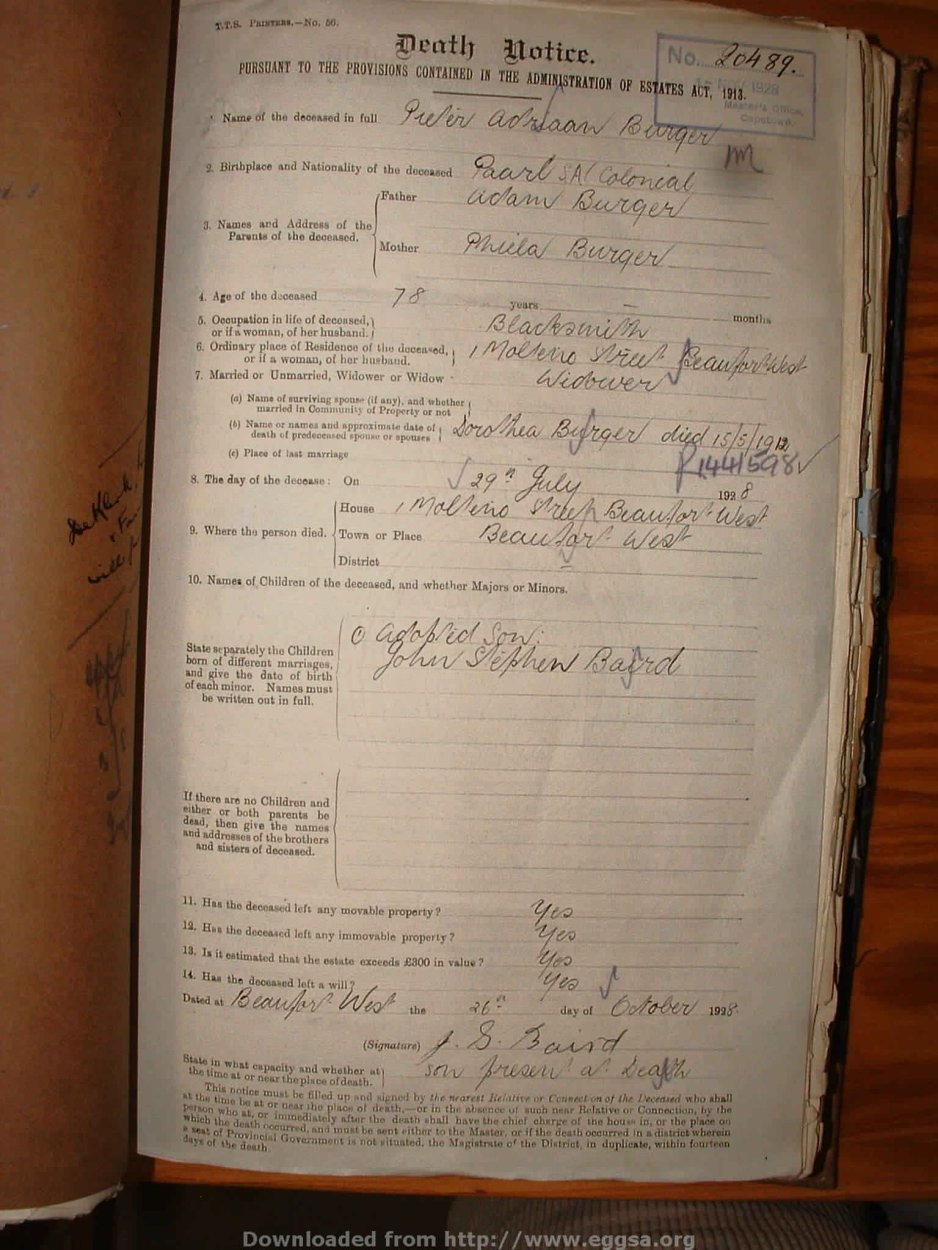 T.T.S. PRINTERS.—No. 56.
Death Notice.
No. 20489.
1928
Master's Office,
Capetown.
PURSUANT TO THE PROVISIONS CONTAINED IN THE ADMINISTRATION OF ESTATES ACT, 1913.
Name of the deceased in full Pieter Adriaan Burger
m
2. Birthplace and Nationality of the deceased Paarl S.A. Colonial
3. Names and Address of the Parents of the deceased.
Father Adam Burger
Mother Phiela Burger
4. Age of the deceased 78 years — months
5. Occupation in life of deceased, or if a woman, of her husband. Blacksmith
6. Ordinary place of Residence of the deceased, or if a woman, of her husband. 1 Molteno Street Beaufort West
7. Married or Unmarried, Widower or Widow - Widower
(a) Name of surviving spouse (if any), and whether married in Community of Property or not
(b) Name or names and approximate date of death of predeceased spouse or spouses Dorothea Burger died 15/5/1912
(c) Place of last marriage
8. The day of the decease: On 29th July 1928
9. Where the person died.
House 1 Molteno Street Beaufort West
Town or Place Beaufort West
District —
10. Names of Children of the deceased, and whether Majors or Minors.
State separately the Children
born of different marriages,
and give the date of birth
of each minor. Names must
be written out in full.
Adopted Son:
John Stephen Baird
If there are no Children and
either or both parents be
dead, then give the names
and addresses of the brothers
and sisters of deceased.
11. Has the deceased left any movable property? Yes
12. Has the deceased left any immovable property? Yes
13. Is it estimated that the estate exceeds £300 in value? Yes
14. Has the deceased left a will? Yes
Dated at Beaufort West the 26th day of October 1928.
(Signature) J. S. Baird
State in what capacity and whether at the time at or near the place of death. Son present at Death
This notice must be filled up and signed by the nearest Relative or Connection of the Deceased who shall
at the time be at or near the place of death,—or in the absence of such near Relative or Connection, by the
person who at, or immediately after the death shall have the chief charge of the house in, or the place on
which the death occurred, and must be sent either to the Master, or if the death occurred in a district wherein
a seat of Provincial Government is not situated, the Magistrate of the District, in duplicate, within fourteen
days of the death.
Downloaded from http://www.eggsa.org